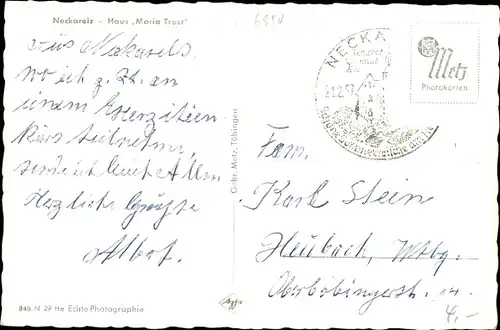 Neckarelz — Haus „Maria Trost"
Aus Neckarelz,
wo ich z. Zt. an
einem Exerzitien
kurs teilnehme,
sende ich Euch Allen
Herzliche Grüsse
Albert.
846 N 29 He Echte Photographie
Gebr. Metz, Tübingen
Agfa
NECKA
21.2.57
Metz
Photokarten
Fam.
Karl Stein
Heubach, Wttbg.
Oberböbingerstr.
4,-